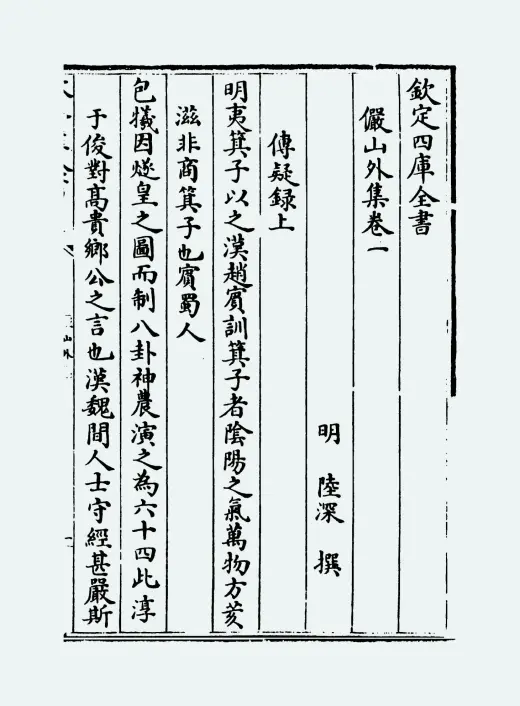 欽定四庫全書
儼山外集卷一
明 陸深 撰
傳疑録上
明夷箕子以之漢趙賔訓箕子者隂陽之氣萬物方荄
滋非商箕子也賔蜀人
包犧因燧皇之圖而制八卦神農演之為六十四此淳
于俊對髙貴鄉公之言也漢魏間人士守經甚嚴斯